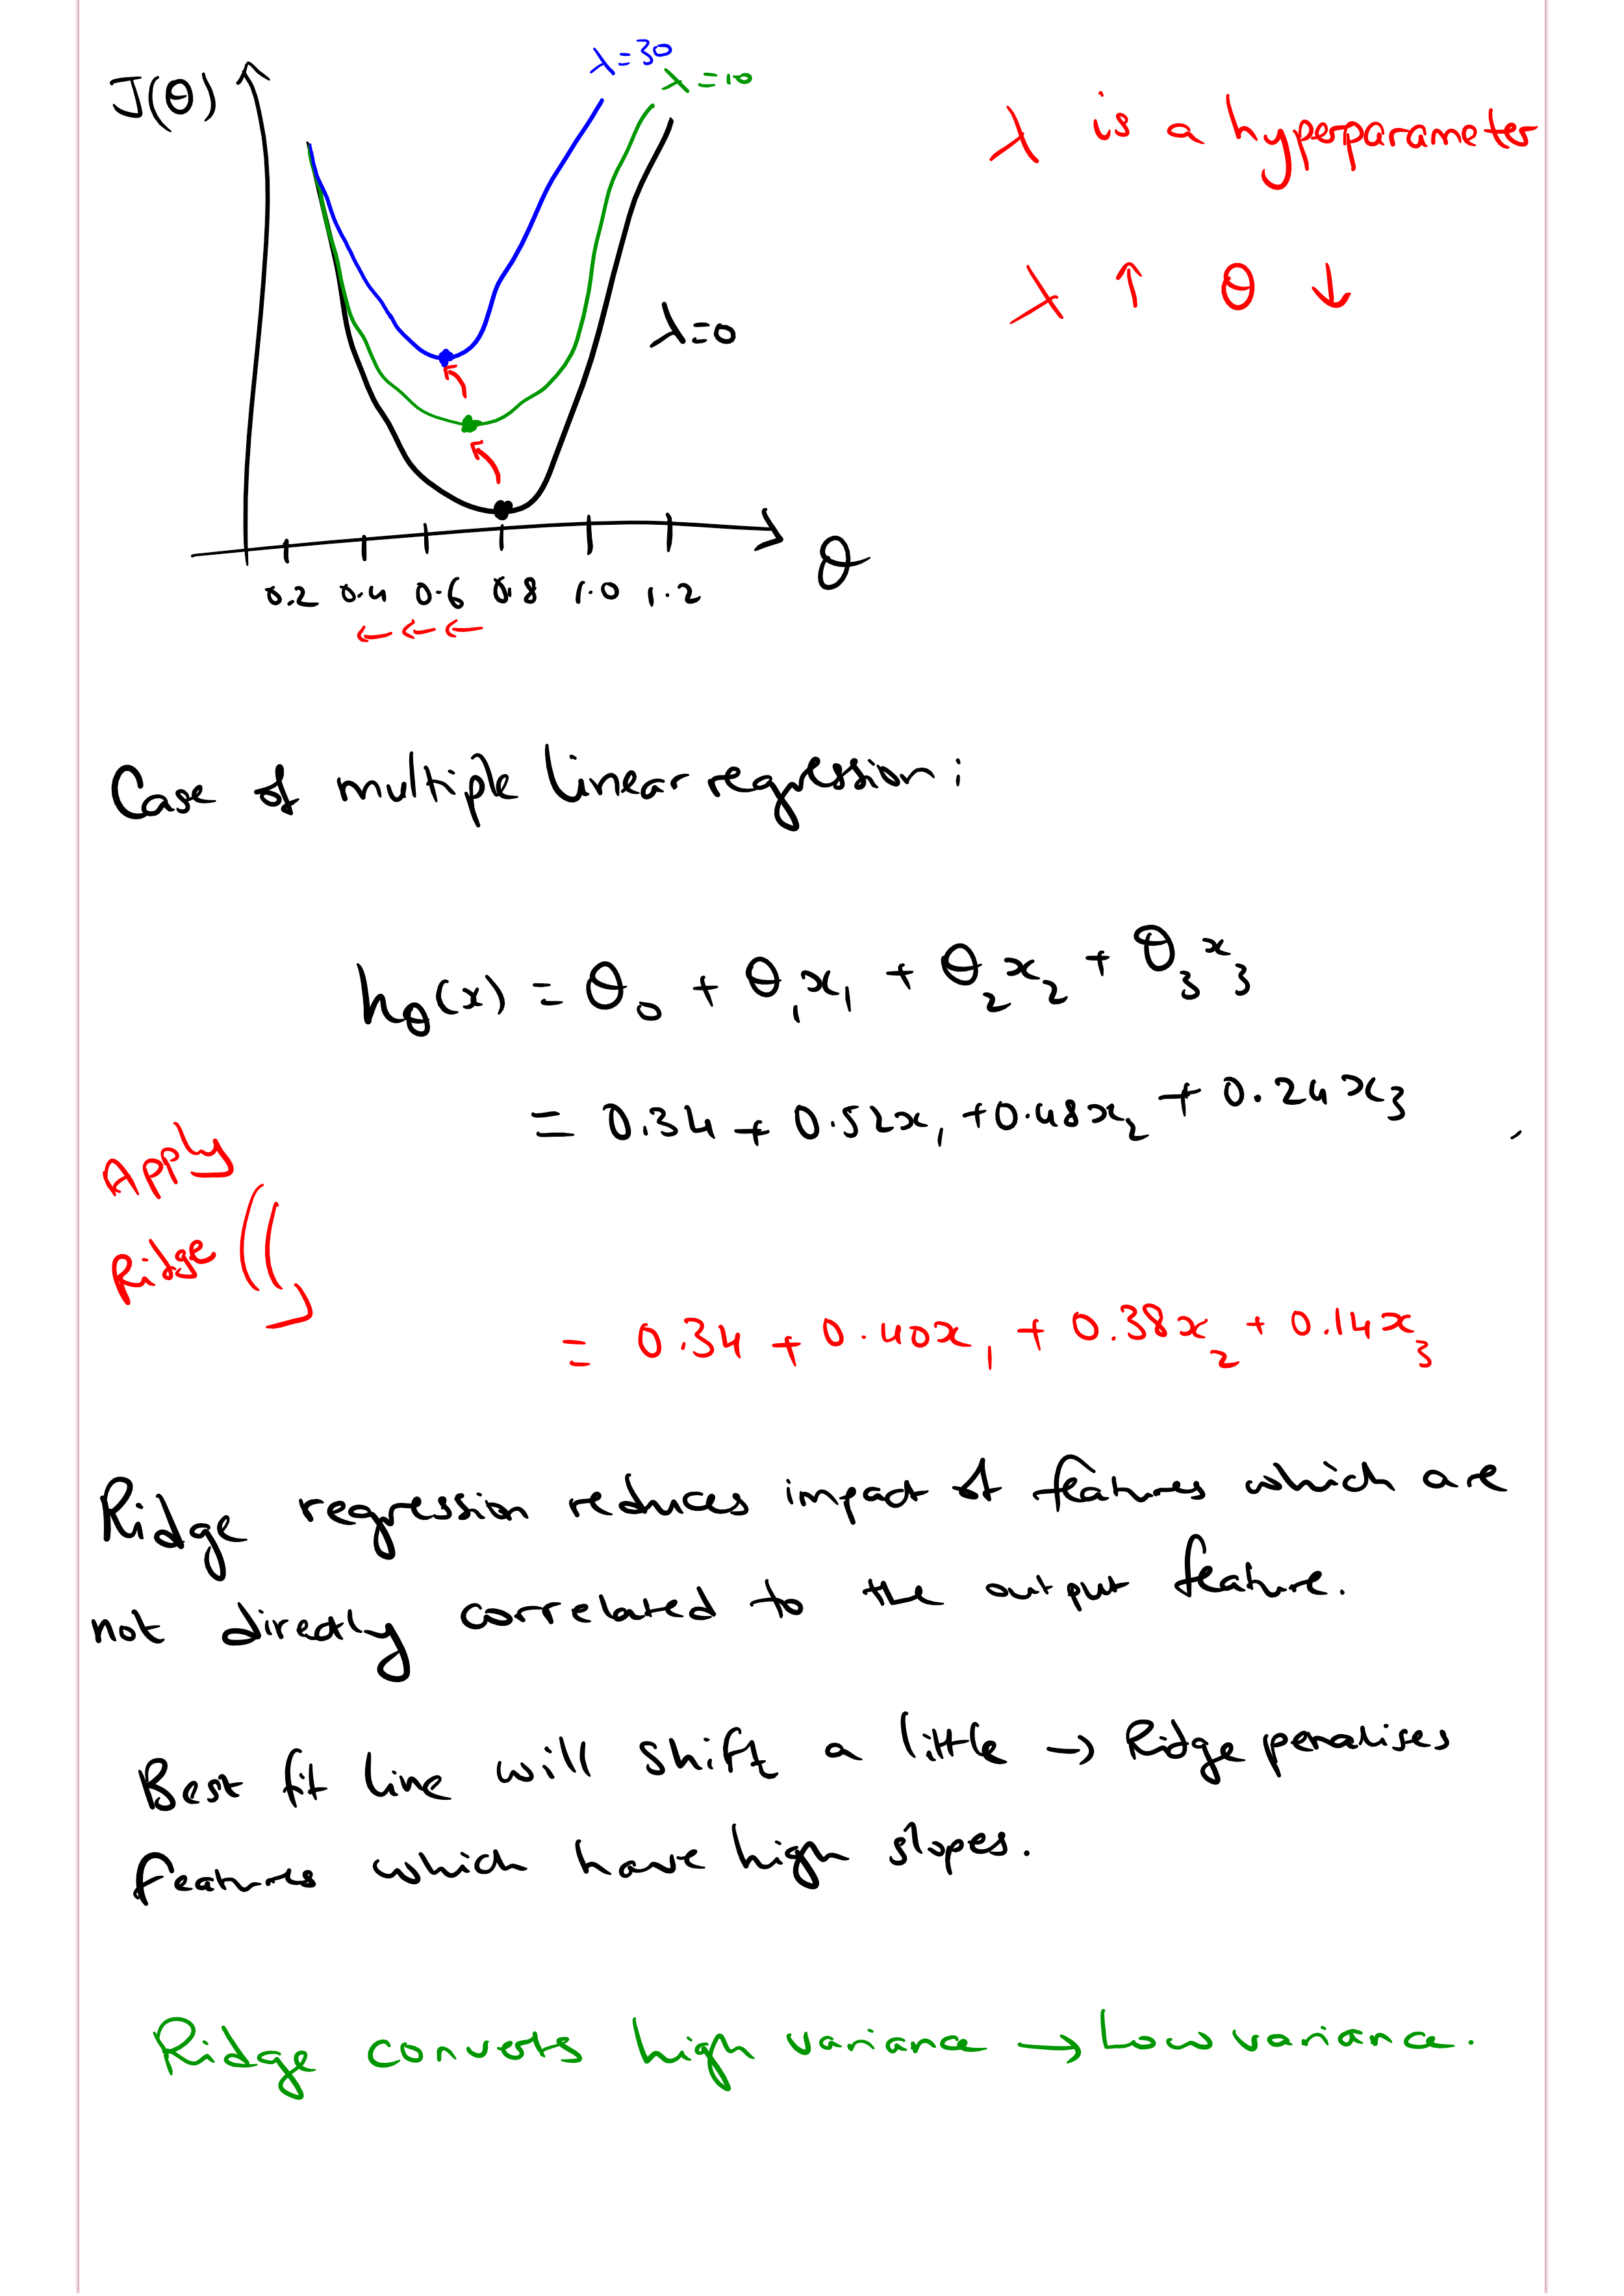 J(θ)
λ=30
λ=10
λ is a hyperparameter
λ ↑ θ ↓
λ=0
θ
0.2 0.4 0.6 0.8 1.0 1.2
Case of multiple linear regression:
hθ(x) = θ₀ + θ₁x₁ + θ₂x₂ + θ₃x₃
= 0.34 + 0.52x₁ + 0.48x₂ + 0.24x₃
Apply
Ridge
= 0.34 + 0.40x₁ + 0.38x₂ + 0.14x₃
Ridge regression reduces impact of features which are
not directly correlated to the output feature.
Best fit line will shift a little → Ridge penalises
features which have high slopes.
Ridge converts high variance → Low variance.